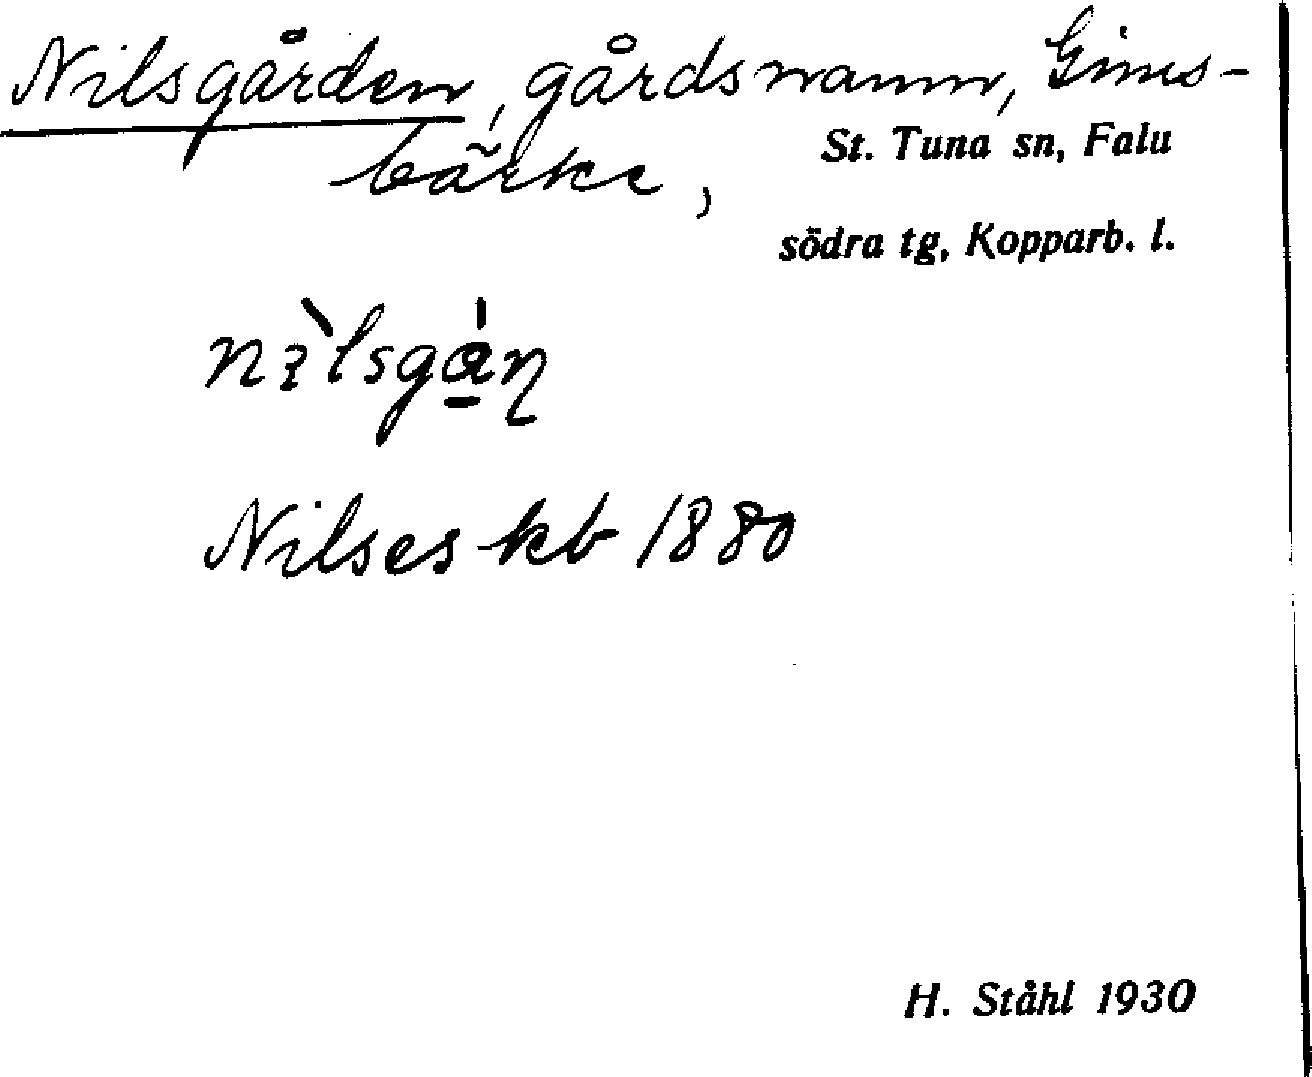 Nilsgården, gårdsnamn, Gims-
bärke,
St. Tuna sn, Falu
södra tg, Kopparb. l.
Nilses kb 1880
H. Ståhl 1930